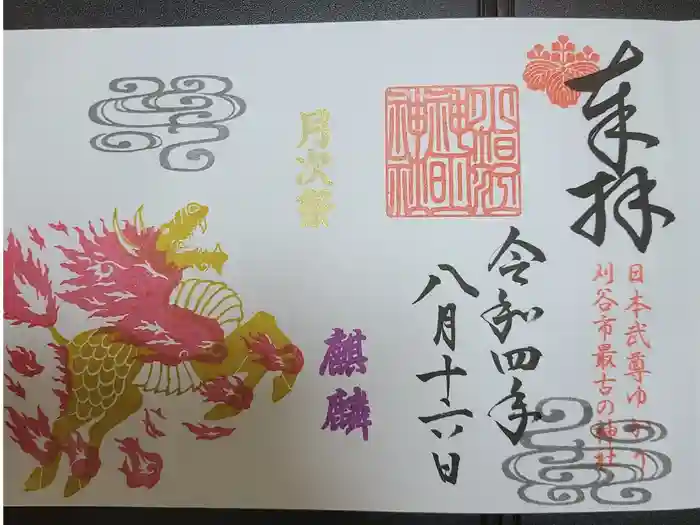 奉拝
日本武尊ゆかり
刈谷市最古の神社
小垣江
神明
神社
令和四年
八月十六日
月次祭
麒麟